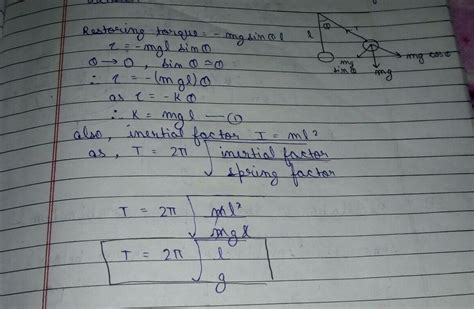 Restoring torque = - mg sinθ l
τ = - mgl sinθ
θ → 0 , sinθ ≈ θ
∴ τ = - (mgl) θ
as τ = - K θ
∴ K = mgl — ①
also, inertial factor I = ml²
as, T = 2π √ inertial factor
spring factor
T = 2π √ ml²
mgl
T = 2π √ l
g
θ
l
T
mg sinθ
mg
mg cosθ